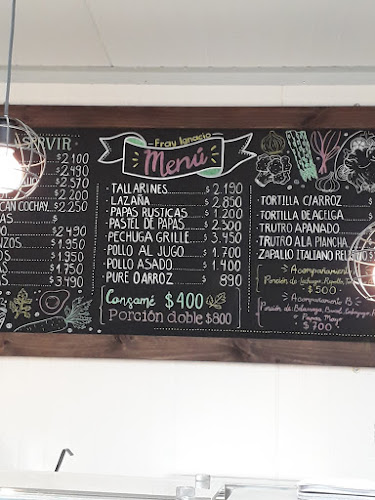 SERVIR
$2.100
$2.490
$2.570
$2.200
CAN COCHAY. $2.250
AS
O $2.490
NZOS $1.950
S $1.950
$1.750
AS $3.490
Fray Ignacio
Menú
TALLARINES $2.190
LAZAÑA $2.850
PAPAS RUSTICAS $1.200
PASTEL DE PAPAS $2.300
PECHUGA GRILLE $3.450
POLLO AL JUGO $1.700
POLLO ASADO $1.400
PURE O ARROZ $890
Consomé $400
Porción doble $800
TORTILLA C/ARROZ
TORTILLA DE ACELGA
TRUTRO APANADO
TRUTRO A LA PLANCHA
ZAPALLO ITALIANO
Acompañamiento
Porción de Lechuga, Repollo,
$500
Acompañamiento B
Porción de Betarraga,
Papas Mayo
$700